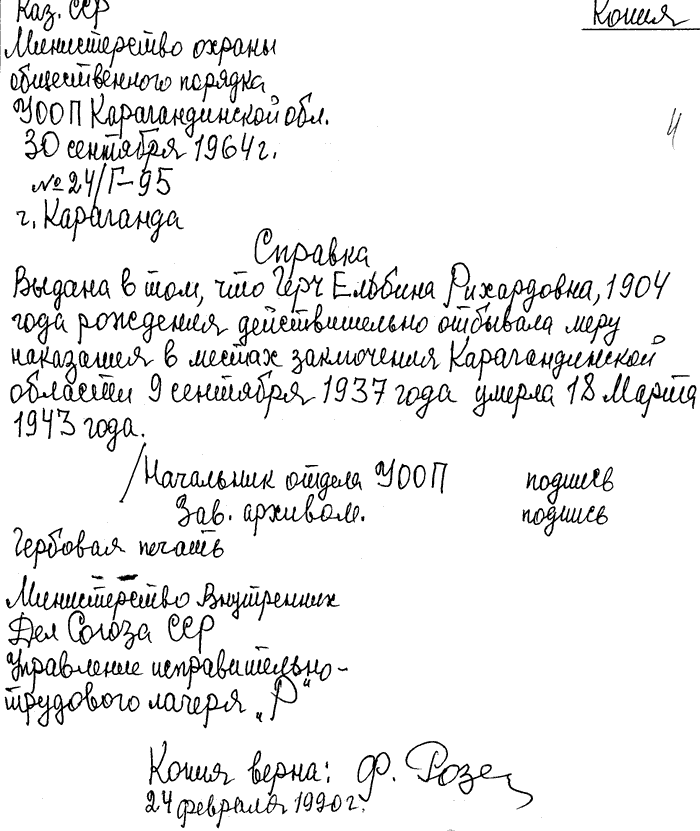 Каз. ССР
Копия
Министерство охраны
общественного порядка
УООП Карагандинской обл.
4
30 сентября 1964 г.
№ 24/Г-95
г. Караганда
Справка
Выдана в том, что Герч Ельбина Рихардовна, 1904
года рождения действительно отбывала меру
наказания в местах заключения Карагандинской
области 9 сентября 1937 года умерла 18 Марта
1943 года.
/Начальник отдела УООП подпись
Зав. архивом. подпись
Гербовая печать
Министерство Внутренних
Дел Союза ССР
Управление исправительно-
трудового лагеря „Р“
Копия верна: Ф. Розе
24 февраля 1990 г.